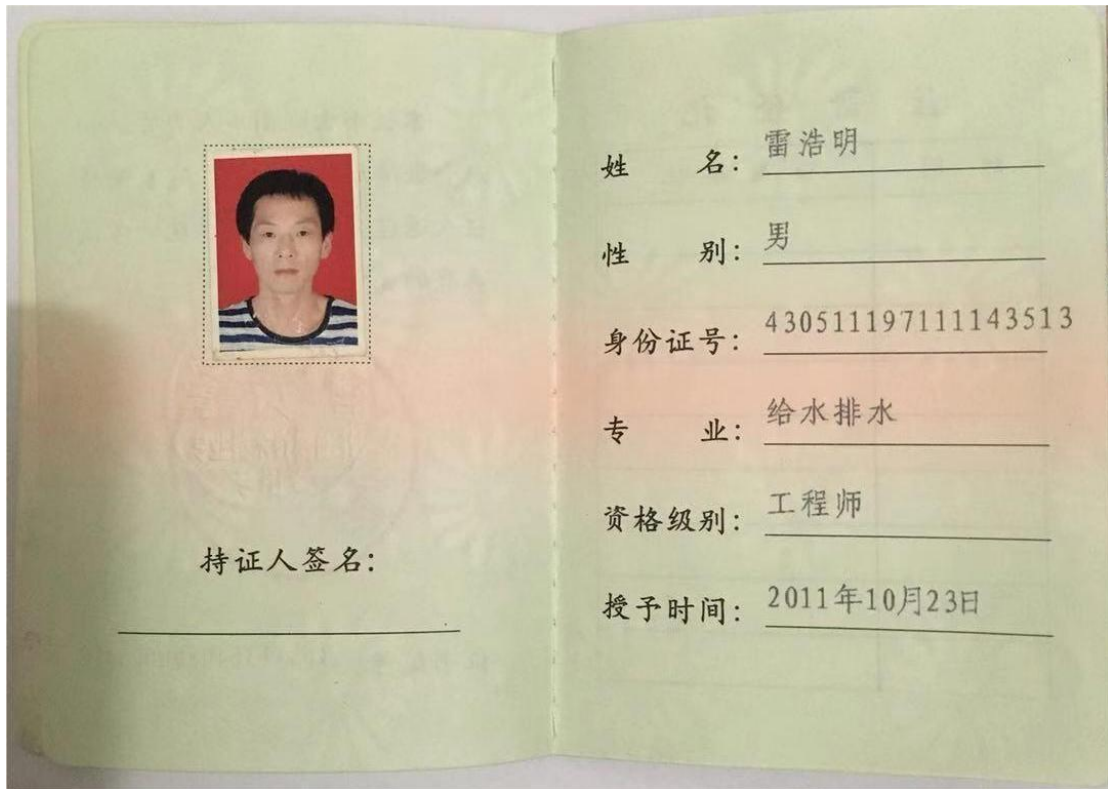 持证人签名：
姓 名：雷浩明
性 别：男
身份证号：430511197111143513
专 业：给水排水
资格级别：工程师
授予时间：2011年10月23日